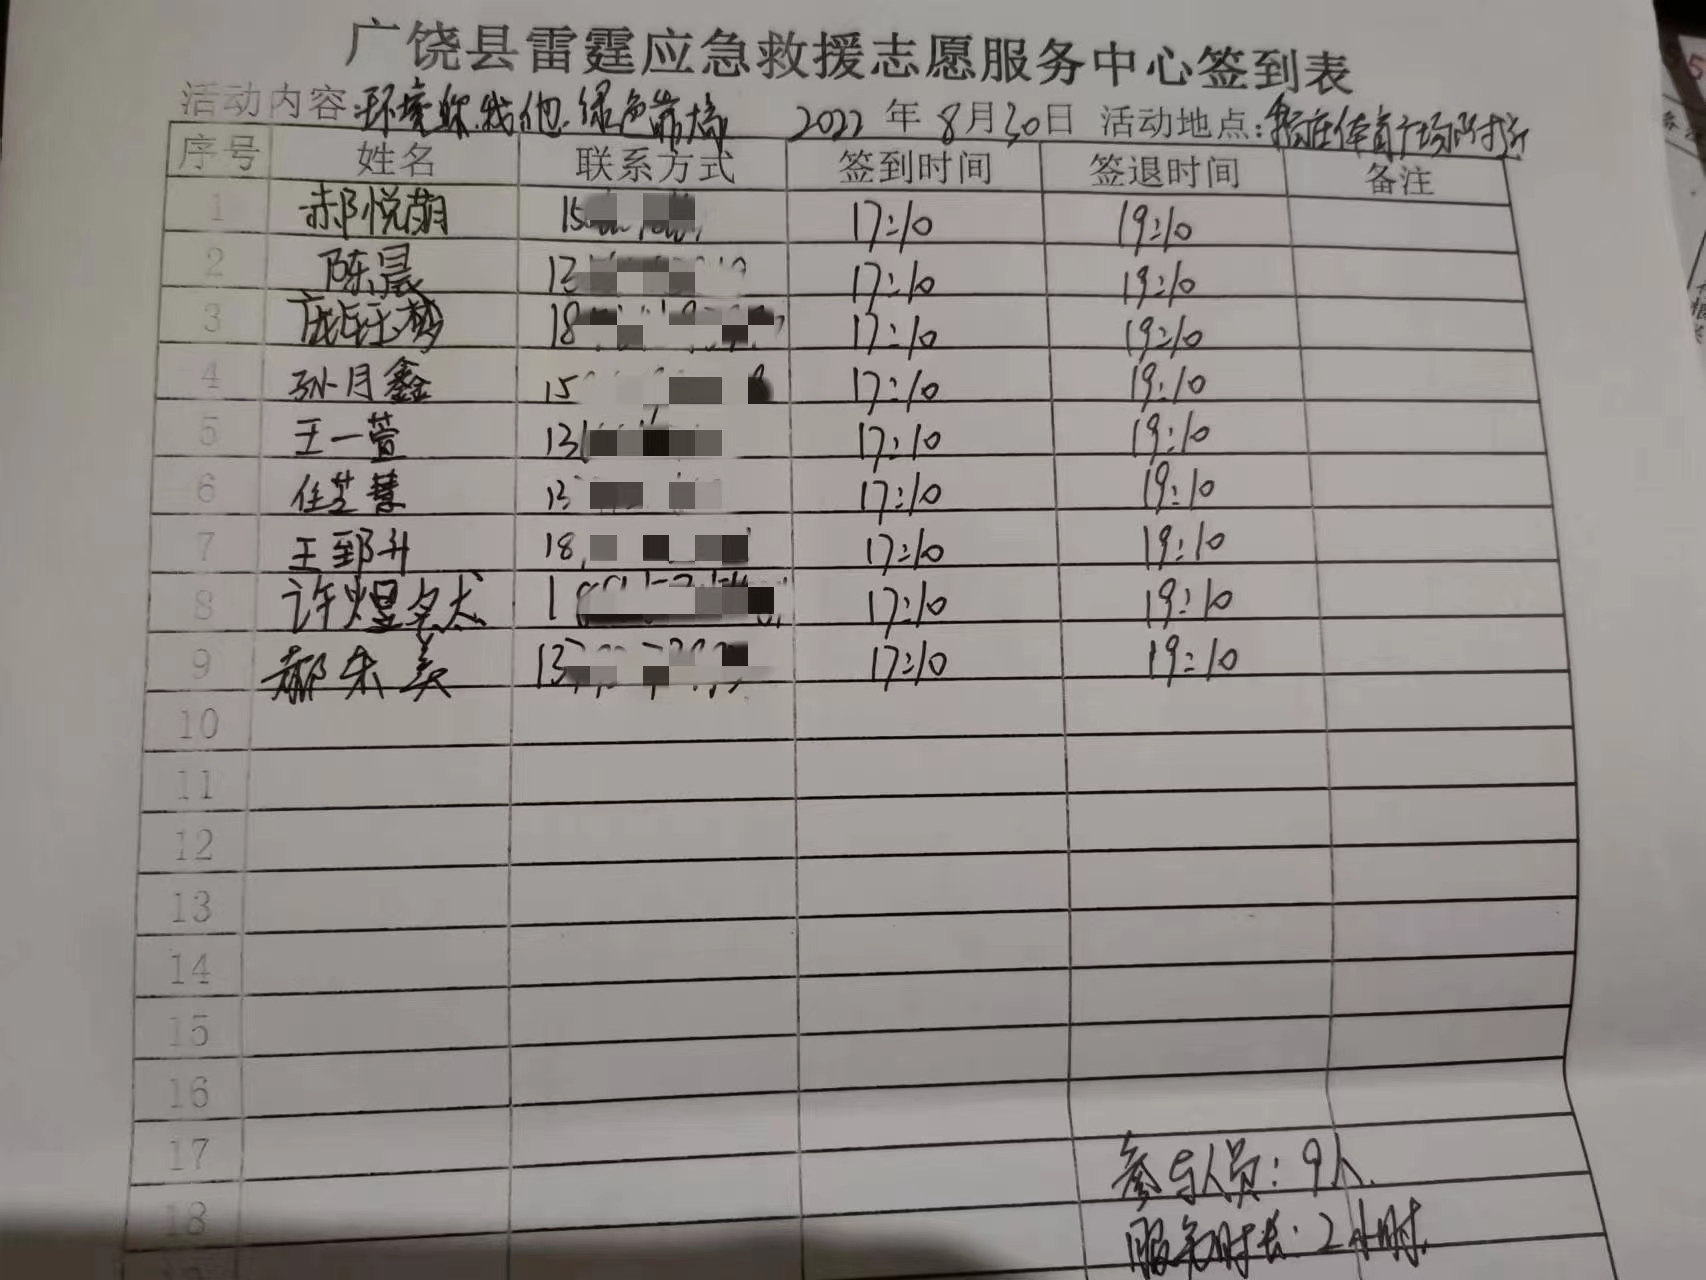 广饶县雷霆应急救援志愿服务中心签到表
活动内容:环境你.我他.绿色常 2022年8月30日 活动地点:庄体育广场附近
序号 姓名 联系方式 签到时间 签退时间 备注
1 郝悦萌 15 17:10 19:10
2 陈晨 13 17:10 19:10
3 庞 18 17:10 19:10
4 孙月鑫 15 17:10 19:10
5 王一萱 13 17:10 19:10
6 任芝慧 13 17:10 19:10
7 王郅升 18 17:10 19:10
8 许煜 1 17:10 19:10
9 郝朱美 13 17:10 19:10
10
11
12
13
14
15
16
17
参与人员:9人.
18
服务时长:2小时.